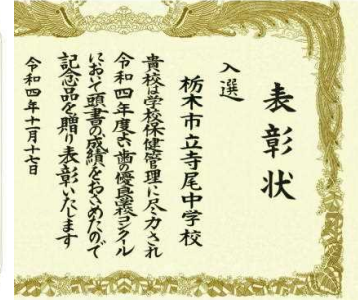 表彰状
入選
栃木市立寺尾中学校
貴校は学校保健管理に尽力され
令和四年度よい歯の優良学校コンクール
において頭書の成績をおさめたので
記念品を贈り表彰いたします
令和四年十一月十七日